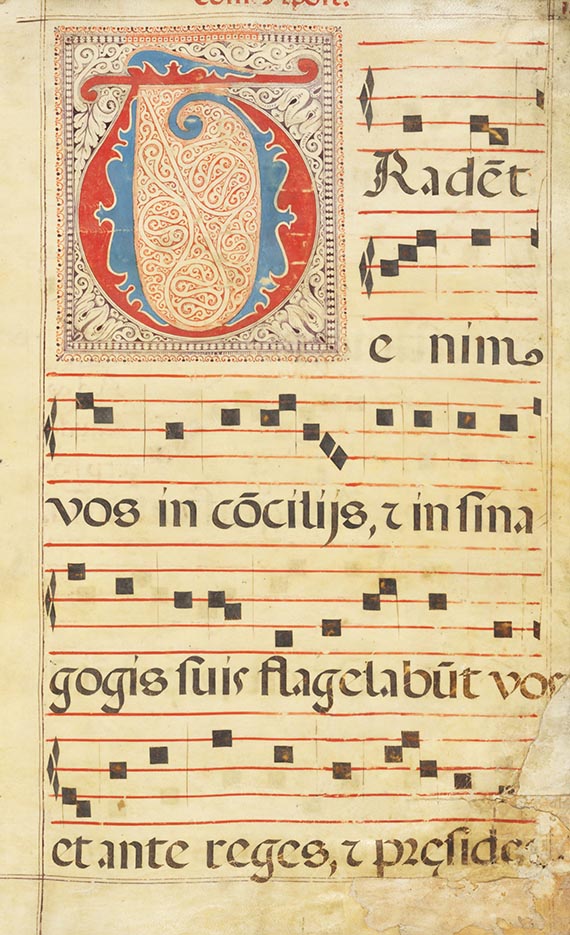 TRadēt
e nim
vos in cōcilijs, ⁊ in ſina
gogis ſuis flagelabūt vos
et ante reges, ⁊ pręſide